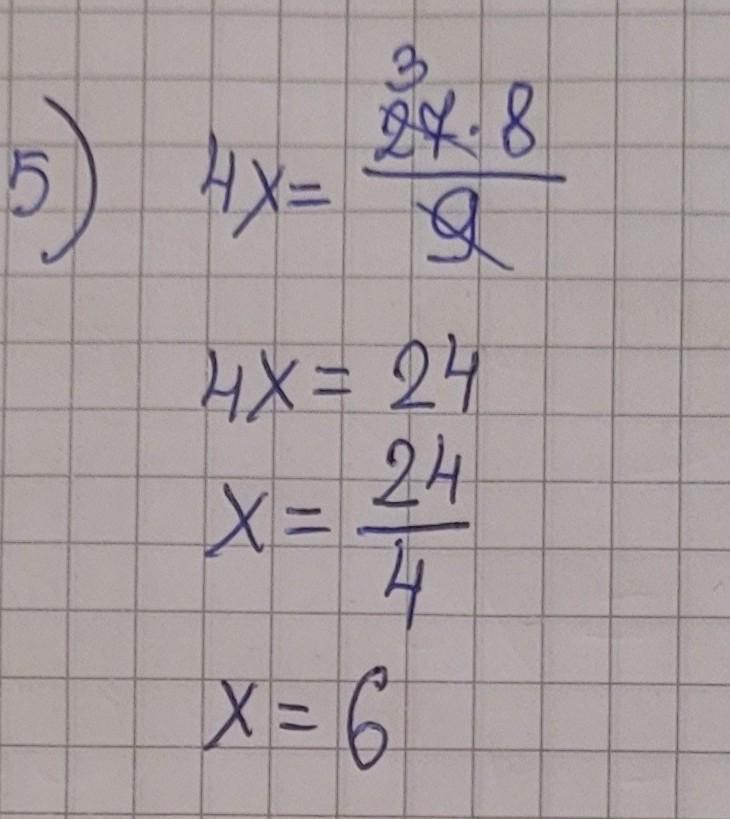 3
5) 4x = 27 · 8
9
4x = 24
x = 24
4
x = 6